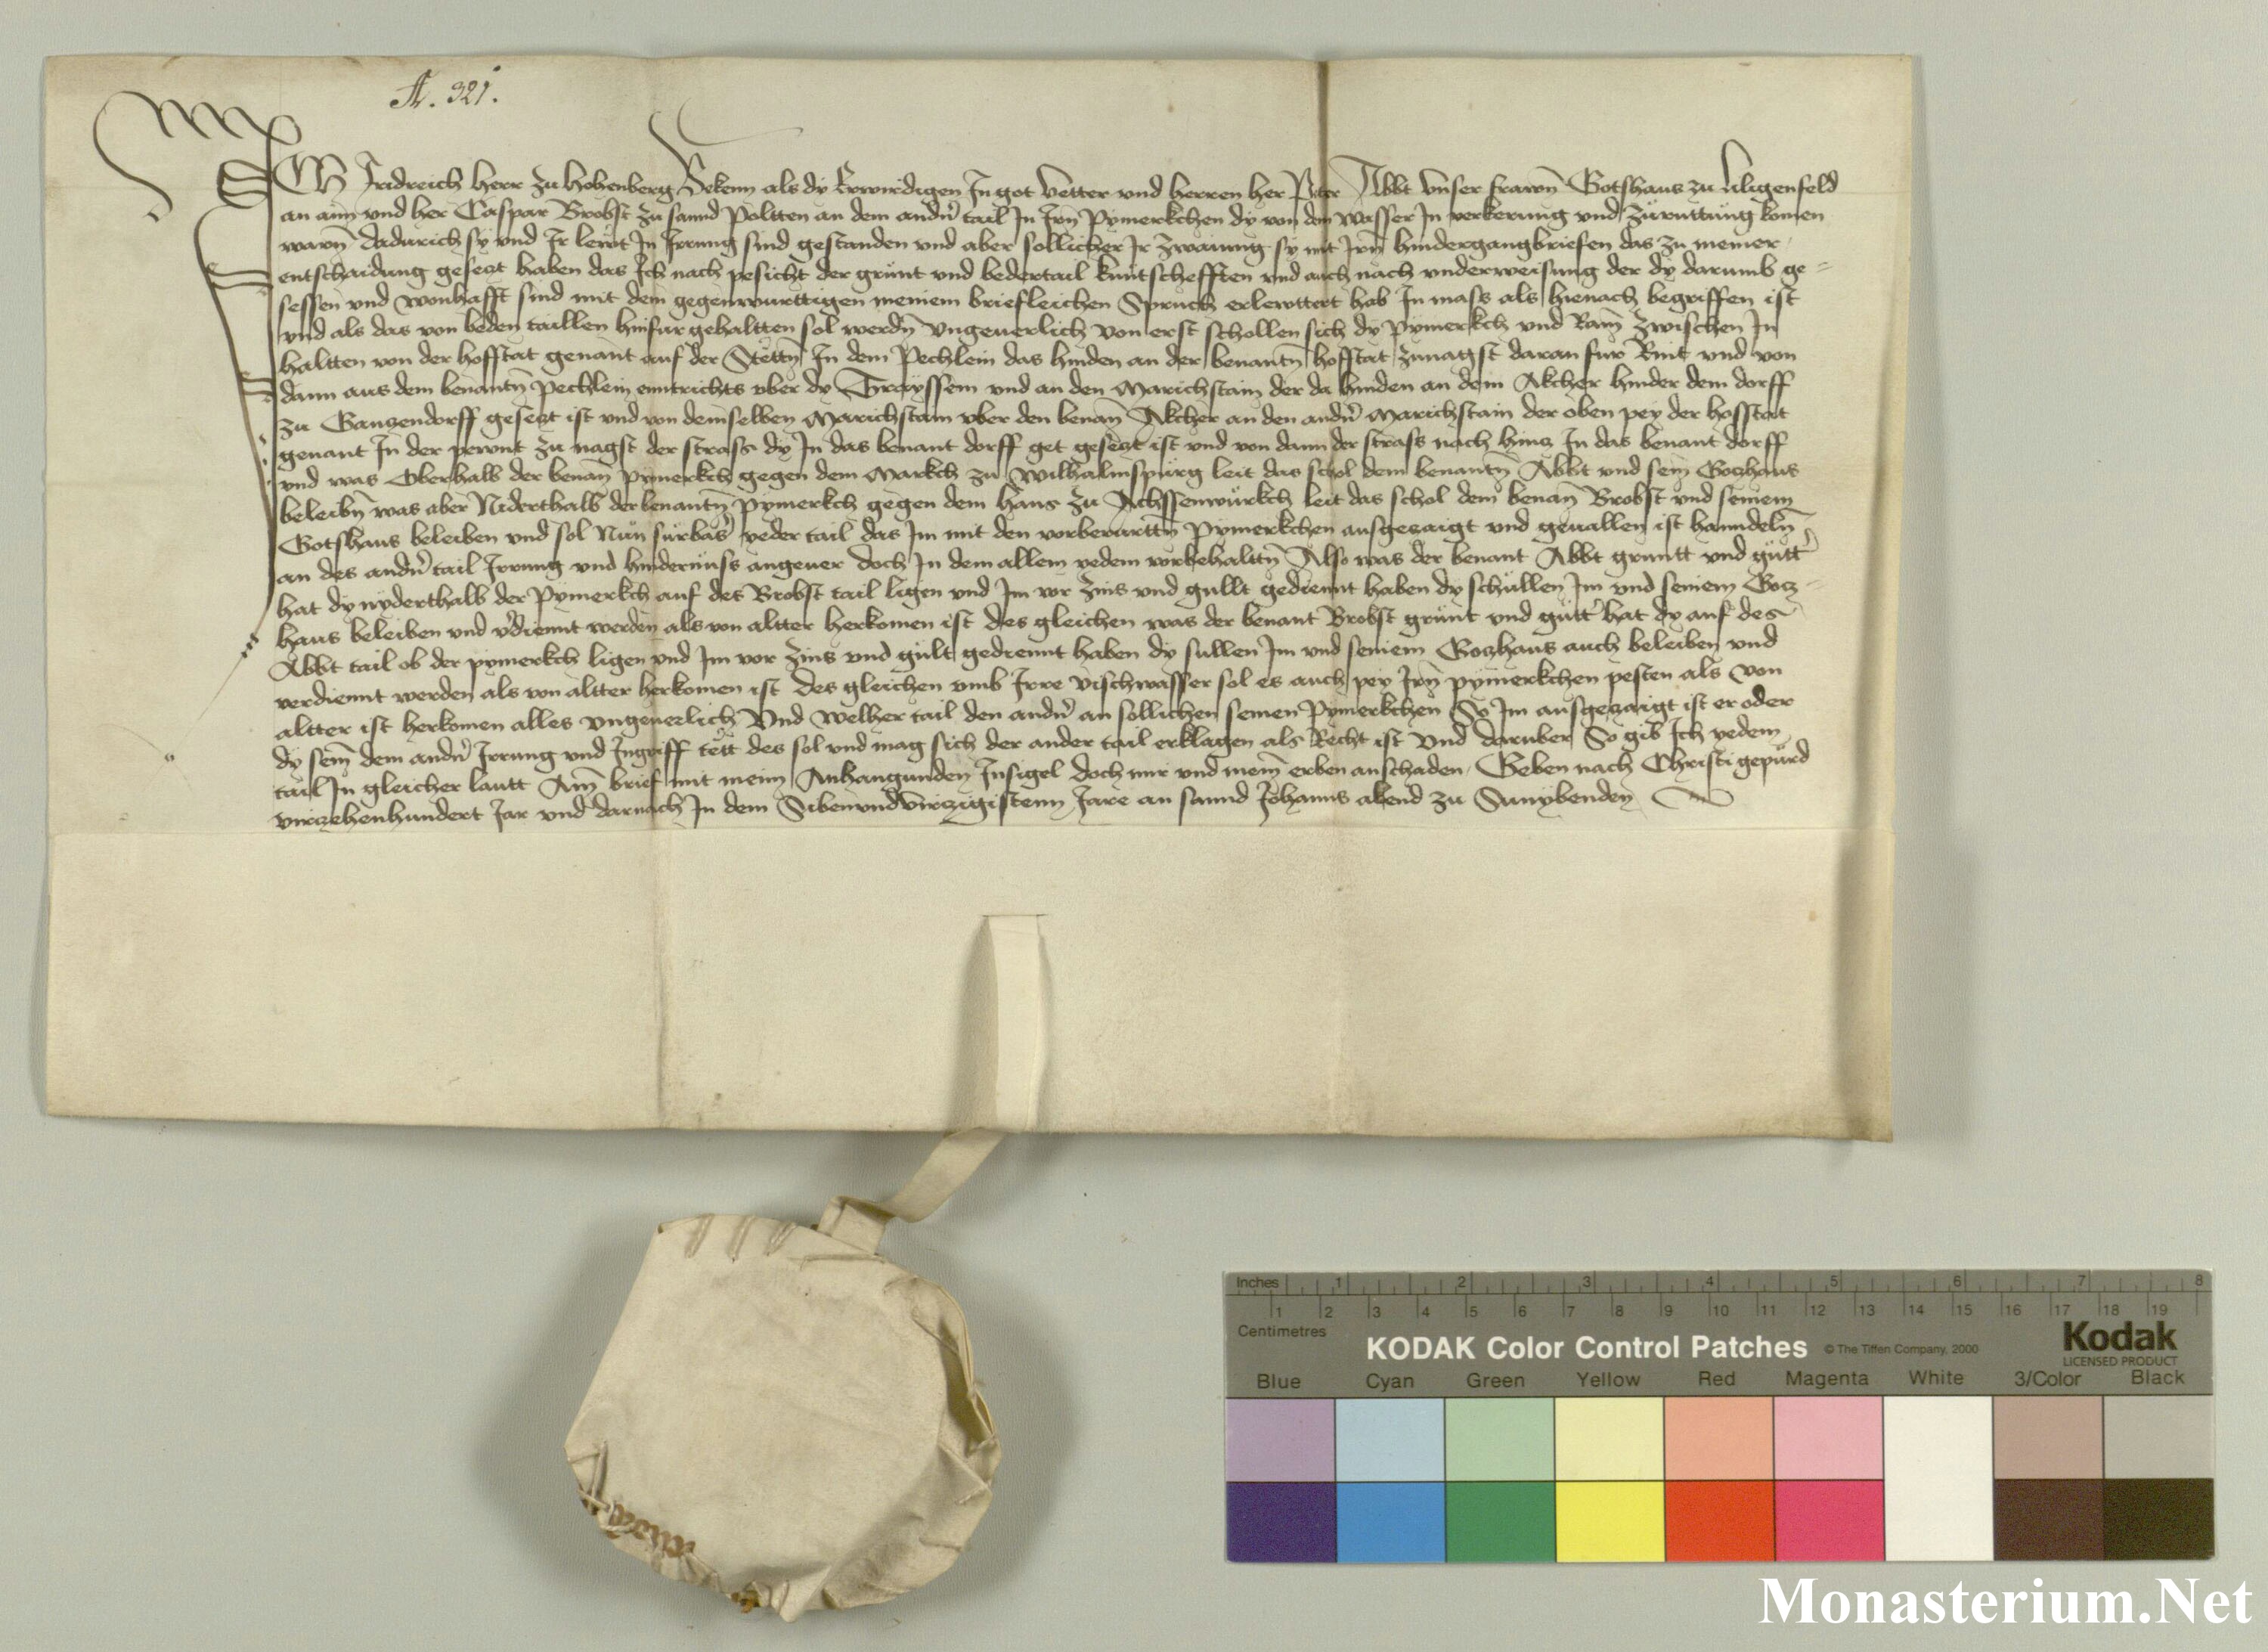 A. 321.
ICH Fridreich herr zu hohenberg Bekenn als dy Erwirdigen In got Vetter und herren her Peter Abbt vnser frawn̄ Gotshaus zu Liligenfeld
an aim vnd her Caspar Brobst zu sannd Poltten an dem andn̄ tail In Irn̄ Pymerkchen dy von dem wasser In verkerung vnd zuruttung komen
warn̄ dadurich sy vnd Ir lewt In Irrung sind gestanden vnd aber sollicher Ir zwaiung sy mit Irn̄ hindergangbriefen das zu meiner
entschaidung geseczt haben das Ich nach pesicht der grünt vnd bedertail kuntschefften vnd auch nach vnderweisung der dy darumb ge=
sessen vnd wonhafft sind mit dem gegenwurttigen meinem briefleichen Spruch erlewttert hab In mass als hienach begriffen ist
vnd als das von beden taillen hinfur gehaltten sol werdn̄ Vngeuerlich Von erst schollen sich dy Pymerkch vnd Rain̄ zwischen In
haltten von der hofstat genant auf der Stettn̄ In dem Pechlein das hinden an der benantn̄ hofstat zunagst daran fur Rint vnd von
dann aus dem benantn̄ Pechlein enntrichts vber dy Trayssem vnd an den Marichstain der da hinden an dem Akcher hinder dem dorff
zu Ganzendorff geseczt ist vnd von demselben Marichstain vber den benan̄ Akcher an den andn̄ Marichstain der oben pey der hofstat
genant In der pewnt zu nagst der strass dy In das benant dorff get geseczt ist vnd von dann der strass nach hincz In das benant dorff
vnd was Oberhalb der benan̄ Pymerkch gegen dem Markch zu Wilhalmspurg leit das schol dem benantn̄ Abbt vnd sein̄ Goczhaus
beleibn̄ was aber Niderthalb der benantn̄ Pymerkch gegen dem haus zu Achssenwurkch leit das schol dem benan̄ Brobst vnd seinem
Gotshaus beleiben vnd sol Nun furbas̄ yeder tail das Im mit den vorberurttn̄ Pymerkchen ausgeczaigt vnd geuallen ist hanndeln̄
an des andn̄ tail Irrung vnd hindernüss angeuer doch In dem allem yedem vorbehaltn̄ Also was der benant Abbt gruntt vnd gütt̄
hat dy nyderthalb der Pymerkch auf des Brobst tail ligen vnd Im vor zins vnd gullt gediennt haben dy schullen Im vnd seinem Gocz=
haus beleiben vnd v̄diennt werden als von altter herkomen ist des gleichen was der benant Brobst grünt vnd gütt̄ hat dy auf des
Abbt tail ob der pymerkch ligen vnd Im vor zins vnd gült gediennt haben dy sullen Im vnd seinem Goczhaus auch beleiben vnd
verdiennt werden als von altter herkomen ist des gleichen vmb Irre vischwasser sol es auch pey Irn̄ pymerkchen pesten als von
altter ist herkomen alles vngeuerlich Vnd welher tail den andn̄ an sollichen seinen Pymerkchen So Im ausgeczaigt ist er oder
dy sein̄ dem andn̄ Irrung vnd Ingriff tett des sol vnd mag sich der ander tail erklagen als Recht ist Vnd daruber So gib Ich yedem
tail In gleicher lautt Ain̄ brief mit meim Anhangunden Insigel doch mir vnd mein̄ erben an schaden Geben nach Christi gepürd
virczehenhundert Jar vnd darnach In dem Sibenvndvirczigistenn Jare an sannd Johanns abend zu Sunybenden
Inches 1 2 3 4 5 6 7 8
1 2 3 4 5 6 7 8 9 10 11 12 13 14 15 16 17 18 19
Centimetres
KODAK Color Control Patches © The Tiffen Company, 2000
Kodak
LICENSED PRODUCT
Blue Cyan Green Yellow Red Magenta White 3/Color Black
Monasterium.Net